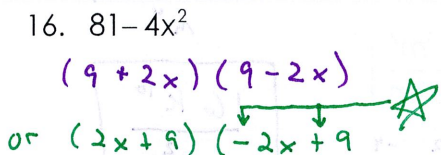 16. 81-4x²
(9+2x)(9-2x)
or (2x+9)(-2x+9